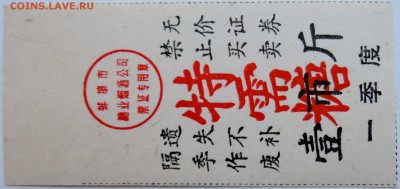 coins.lave.ru
无价证券
禁止买卖
特需糖
壹市斤
一季度
遗失不补
隔季作废
蚌埠市
糖业烟酒公司
票证专用章